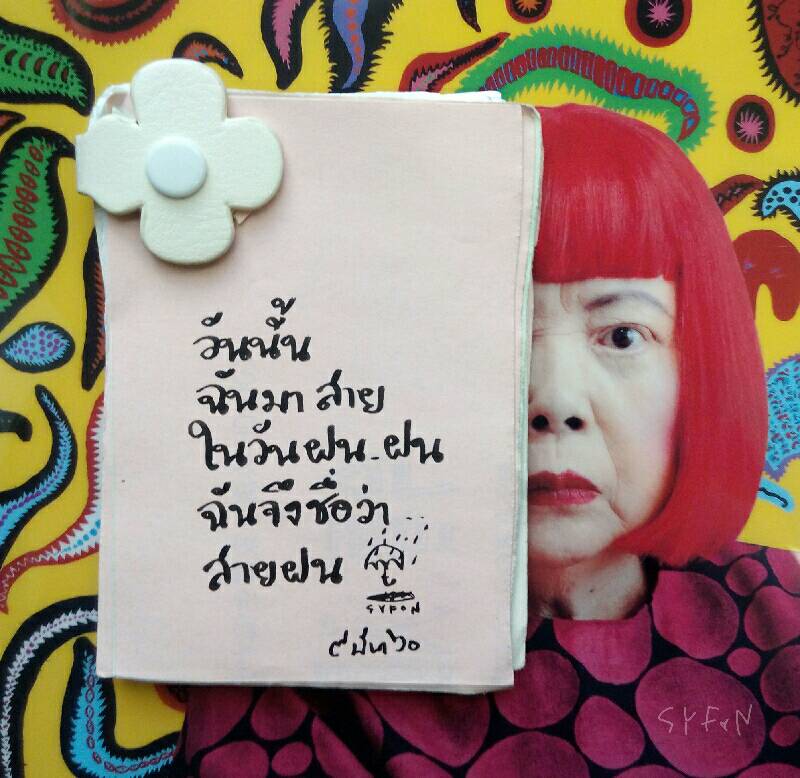 วันนั้น
ฉันมา สาย
ในวันฝน-ฝน
ฉันจึงชื่อว่า
สายฝน
SYFON
๙ มีค ๖๐
SYFON